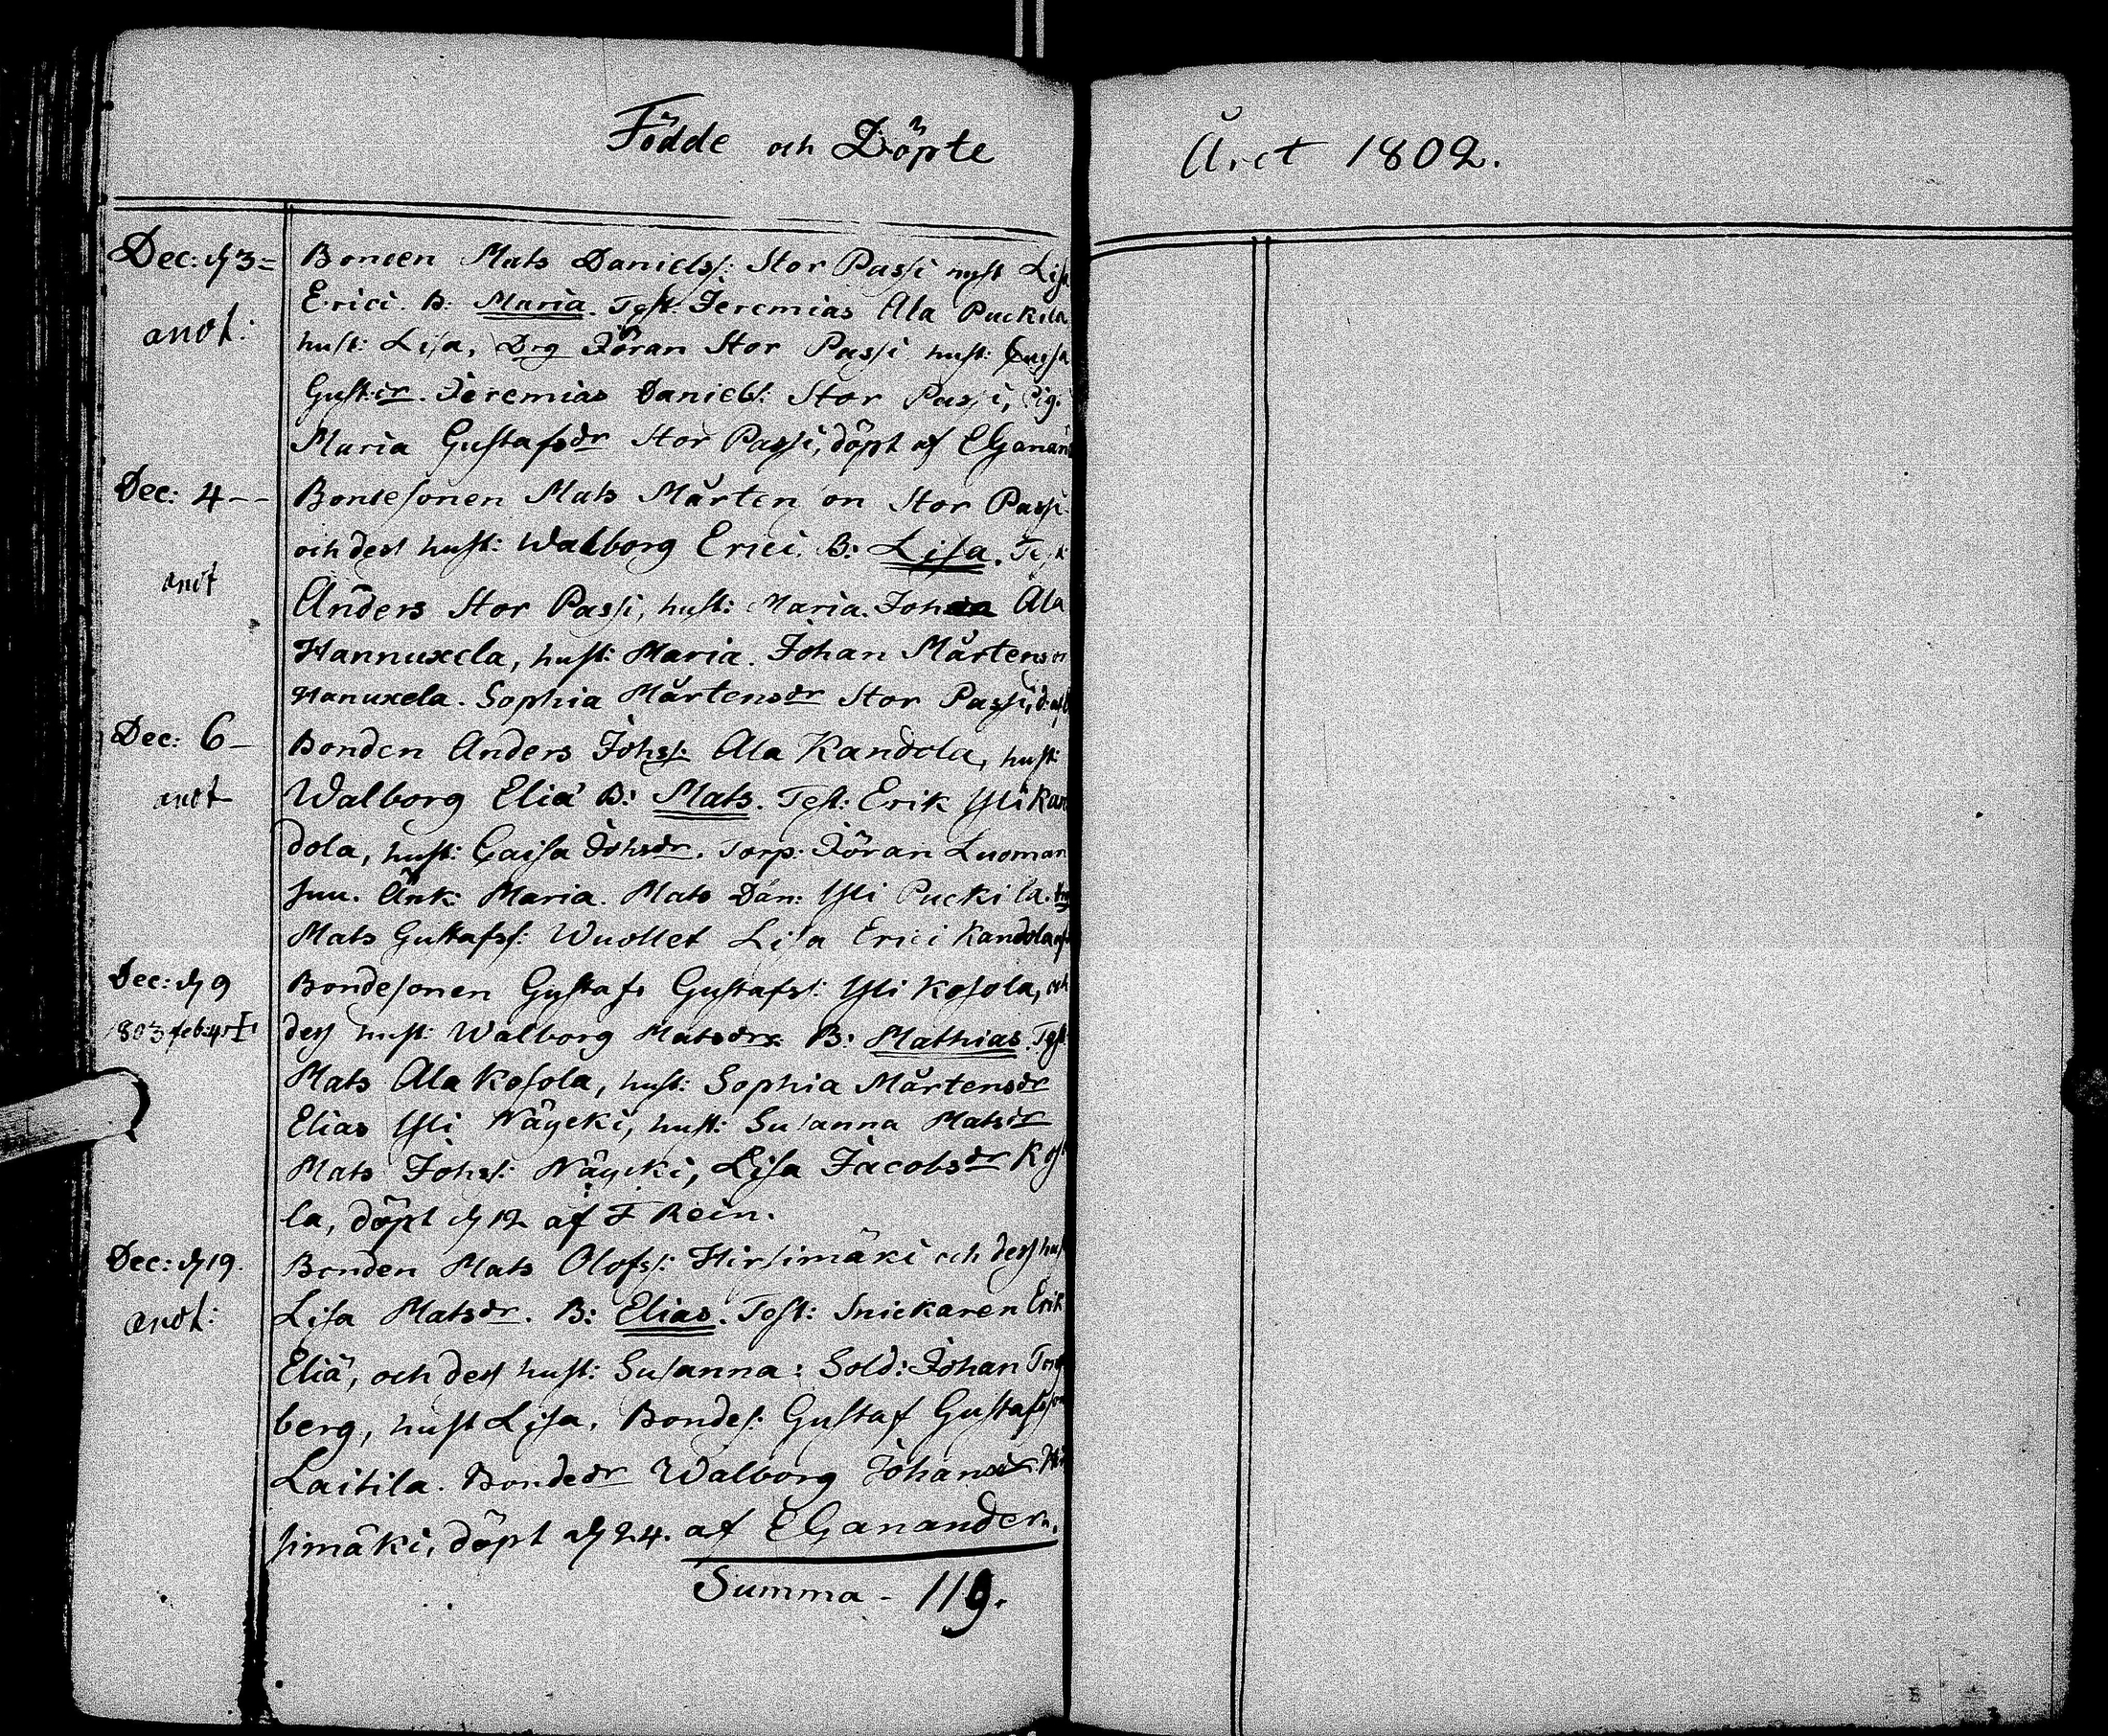 Födde och Döpte Året 1802.
Dec: d 3= Bonden Mats Danielss: Stor Passi hust Lisa
Erici. B: Maria. Test: Jeremias Ala Puckila
anot: hust: Lisa, Drg Jöran Stor Passi hust: Caisa
Gust:dr. Jeremias Daniels: Stor Passi, Pig.
Maria Gustafsdr Stor Passi, döpt af EGanan
Dec: 4-- Bondesonen Mats Mårten on Stor Passi
och dess hust: Walborg Erici. B: Lisa. Test
anot Anders Stor Passi, hust: Maria. Johan Ala
Hannuxela, hust: Maria. Johan Mårtenson
Hanuxela. Sophia Mårtensdr Stor Passi, d: af
Dec: 6- Bonden Anders Johss: Ala Kandola, hust:
anot Walborg Eliæ B: Mats. Test: Erik Yli Kan
dola, hust: Caisa Johsdr. Torp: Jöran Luoman
suu. Änk: Maria. Mats Dan: Yli Puckila.
Mats Gustafss: Wuollet Lisa Erici Kandola af
Dec: d 9 Bondesonen Gustaf Gustafss: Yli Kosola, och
1803 feb: 4. † dess hust: Walborg Matsdr: B: Mathias. Test
Mats Ala Kosola, hust: Sophia Mårtensdr
Elias Yli Näycki, hust: Susanna Matsdr
Mats Johss: Näycki, Lisa Jacobsdr Koso
la, döpt d 12 af F Rein.
Dec: d 19. Bonden Mats Olofss: Hirsimäki och dess hust
anot: Lisa Matsdr. B: Elias. Test: Snickaren Erik
Eliæ, och dess hust: Susanna: Sold: Johan Torp
berg, hust Lisa. Bondes: Gustaf Gustafsson
Laitila. Bondedr Walborg Johansdr Hir
simäki, döpt d 24. af EGanander.
Summa - 119.